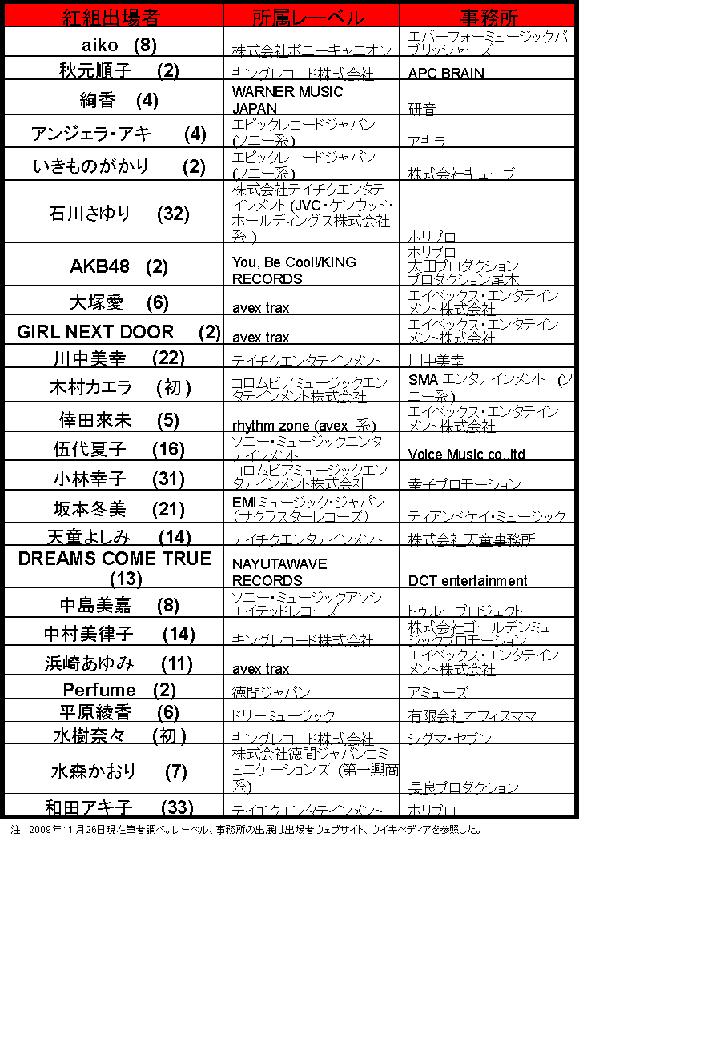 紅組出場者 所属レーベル 事務所
aiko (8) 株式会社ポニーキャニオン エバーフォーミュージックパ
ブリッシャーズ
秋元順子 (2) キングレコード株式会社 APC BRAIN
絢香 (4) WARNER MUSIC
JAPAN 研音
アンジェラ・アキ (4) エピックレコードジャパン
(ソニー系)
いきものがかり (2) エピックレコードジャパン
(ソニー系) 株式会社キューブ
石川さゆり (32) 株式会社テイチクエンタテ
インメント(JVC・ケンウッド・
ホールディングス株式会社
系) ホリプロ
AKB48 (2) You, Be Cool!/KING
RECORDS ホリプロ
太田プロダクション
プロダクション尾木
大塚愛 (6) avex trax エイベックス・エンタテイン
メント株式会社
GIRL NEXT DOOR (2) avex trax エイベックス・エンタテイン
メント株式会社
川中美幸 (22) テイチクエンタテインメント 川中美幸
木村カエラ (初) コロムビアミュージックエン
タテインメント株式会社 SMA エンタテインメント (ソ
ニー系)
倖田來未 (5) rhythm zone (avex 系) エイベックス・エンタテイン
メント株式会社
伍代夏子 (16) ソニー・ミュージックエンタ
テインメント Voice Music co.,ltd
小林幸子 (31) コロムビアミュージックエン
タテインメント株式会社 幸子プロモーション
坂本冬美 (21) EMIミュージック・ジャパン
(ナクラスターレコーズ) ティアンドケイ・ミュージック
天童よしみ (14) テイチクエンタテインメント 株式会社天童事務所
DREAMS COME TRUE
(13) NAYUTAWAVE
RECORDS DCT entertainment
中島美嘉 (8) ソニー・ミュージックアソシ
エイテッドレコーズ トゥループロジェクト
中村美律子 (14) キングレコード株式会社 株式会社ゴールデンミュ
ージックプロモーション
浜崎あゆみ (11) avex trax エイベックス・エンタテイン
メント株式会社
Perfume (2) 徳間ジャパン アミューズ
平原綾香 (6) ドリーミュージック 有限会社オフィスママ
水樹奈々 (初) キングレコード株式会社 シグマ・セブン
水森かおり (7) 株式会社徳間ジャパンコミ
ュニケーションズ (第一興商
系) 長良プロダクション
和田アキ子 (33) テイチクエンタテインメント ホリプロ
注 2009年11月26日現在筆者調べ。レーベル、事務所の出展は出場者ウェブサイト、ウイキペディアを参照した。